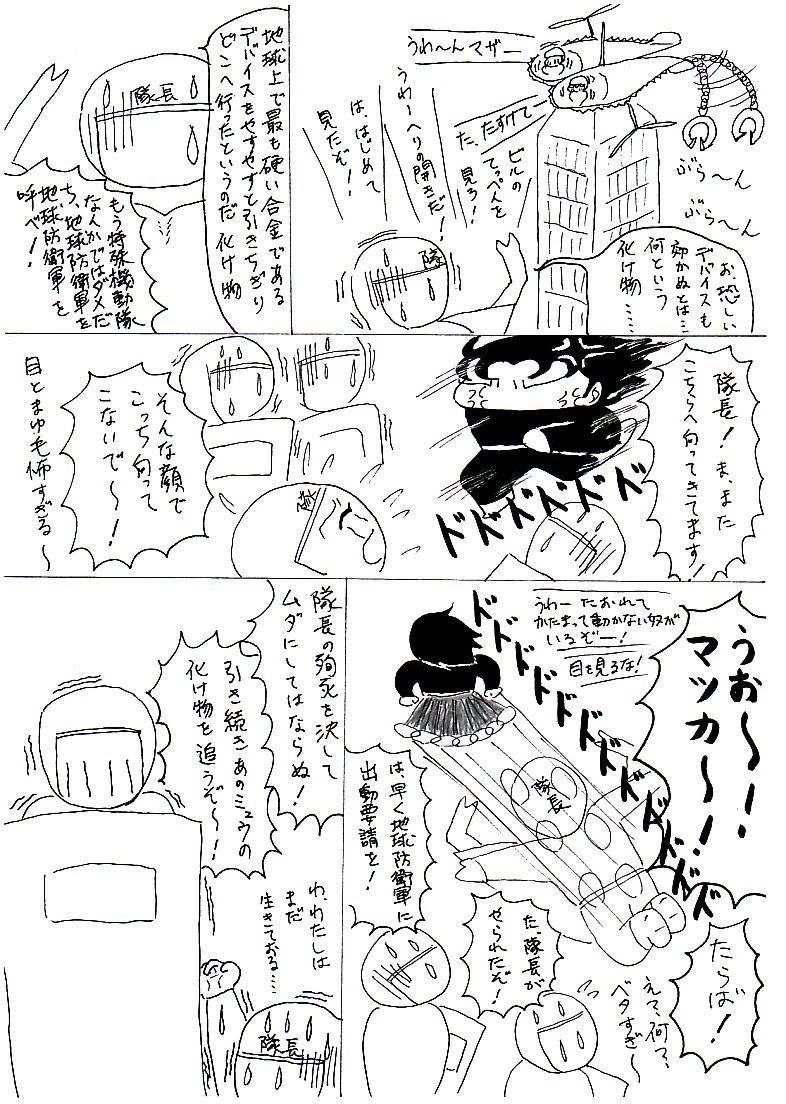 うわ〜んマザー
た、たすけて〜
ぶら〜ん
ぶら〜ん
お、恐しい
デバイスも
効かぬとは…
何という
化け物……
ビルの
てっぺんを
見ろ!
うわーヘリの開きだ!
は、はじめて
見たぞ!
隊
地球上で最も硬い合金である
デバイスをやすやすと引きちぎり
どこへ行ったというのだ 化け物
隊長
もう特殊機動隊
なんかではダメだ
ち、地球防衛軍を
地球防衛軍を
呼べ!
隊長!ま、また
こちらへ向ってきてます!
ドドドドドド
そんな顔で
こっち向って
こないで〜!
目とまゆ毛怖すぎる〜
うお〜!
マッカ〜!
うわー たおれて
かたまって動かない奴が
いるぞー!
目を見るな!
ドドドドドドドドドドドド
隊長
たらば!
え?、何?、
ベタすぎ〜
た、隊長が
やられたぞ!
は、早く地球防衛軍に
出動要請を!
隊長の殉死を決して
ムダにしてはならぬ!
引き続きあのミュウの
化け物を追うぞ〜!
わ、わたしは
まだ
生きておる…
隊長